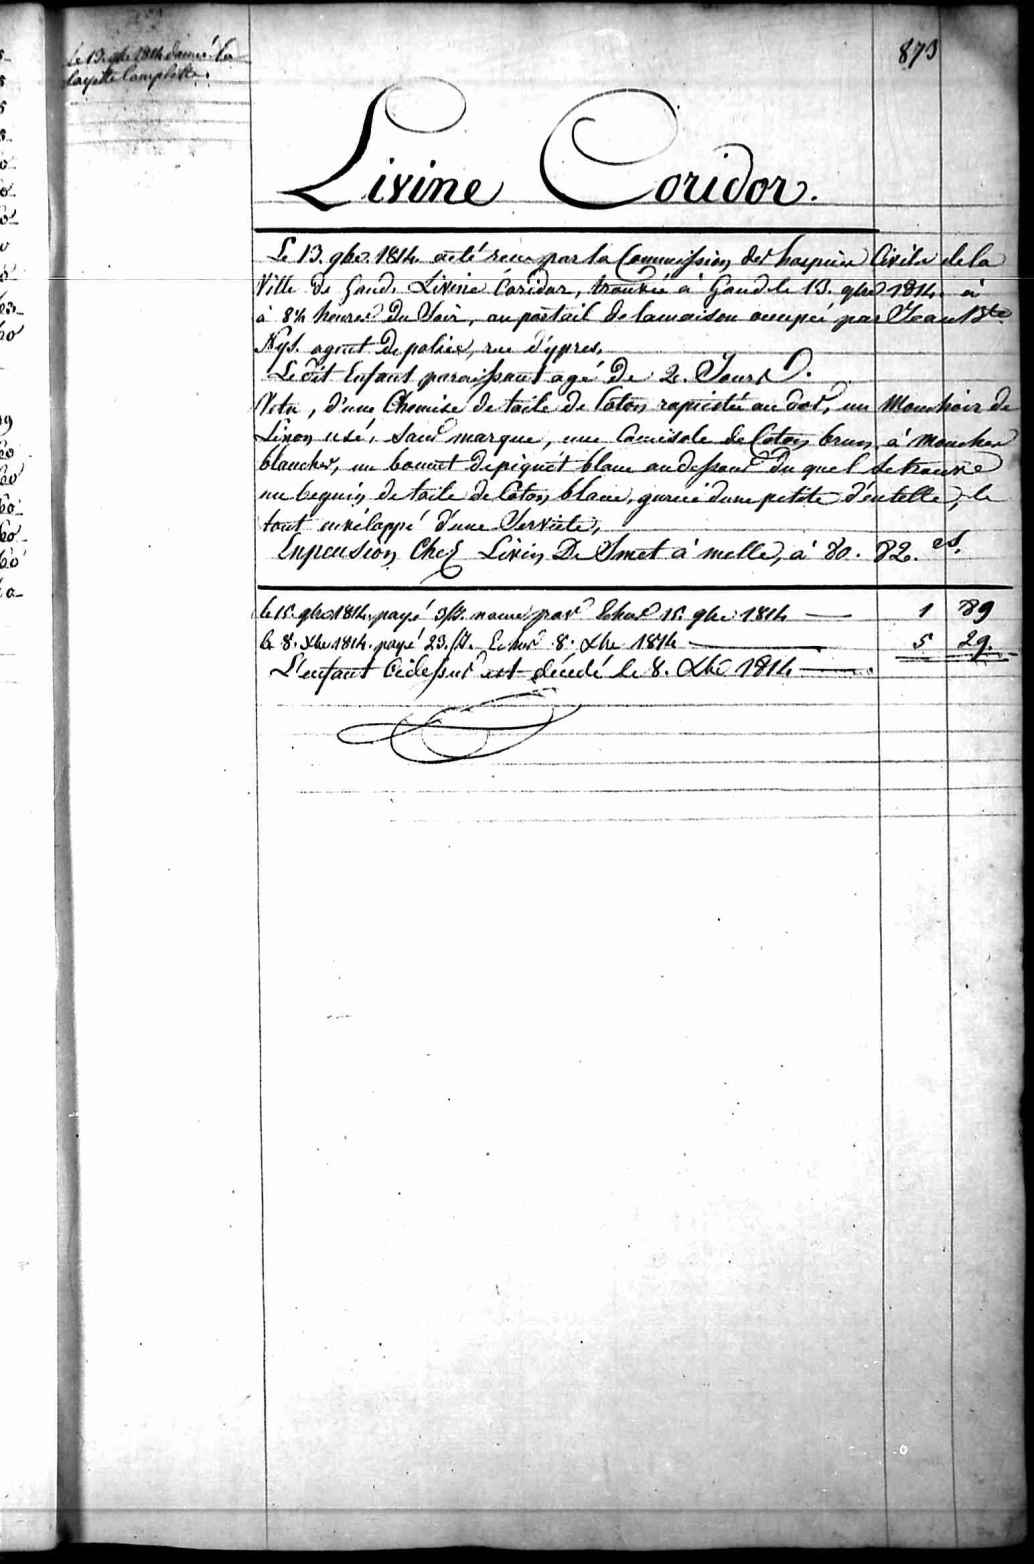 873
le 13 gbe 1814 donné la
layette complette.
Livine Coridor.
Le 13. gbre 1814 a été recu par la Commission des hospices Civils de la
Ville de Gand, Livine Coridor, trouvée à Gand le 13. gbre 1814 à
à 8½ heures du Soir, au portail de la maison occupée par Jean Bte
Nys. agent de police, rue d'ypres,
Le dit Enfant paraissant agé de 2. Jours.
Vetu, d'une Chemise de toile de Coton rapiecetée au dos, un Mouchoir de
Linon usé, sans marque, une Camisole de Coton brun à mouches
blanches, un bonnet de piquet blanc au dessous du quel se trouve
un beguin de toile de Coton blanc, garnie d'une petite d'entelle, le
tout envéloppé d'une Serviete,
En pension Chez Livin De Smet à melle, à 80. 82. es.
le 15 gbre 1814. payé par 15 gbre 1814 1 89
le 8. Xbre 1814. payé 23. 8. Xbre 1814 5 29.
L'enfant Cidessus est décédé le 8. Xbre 1814